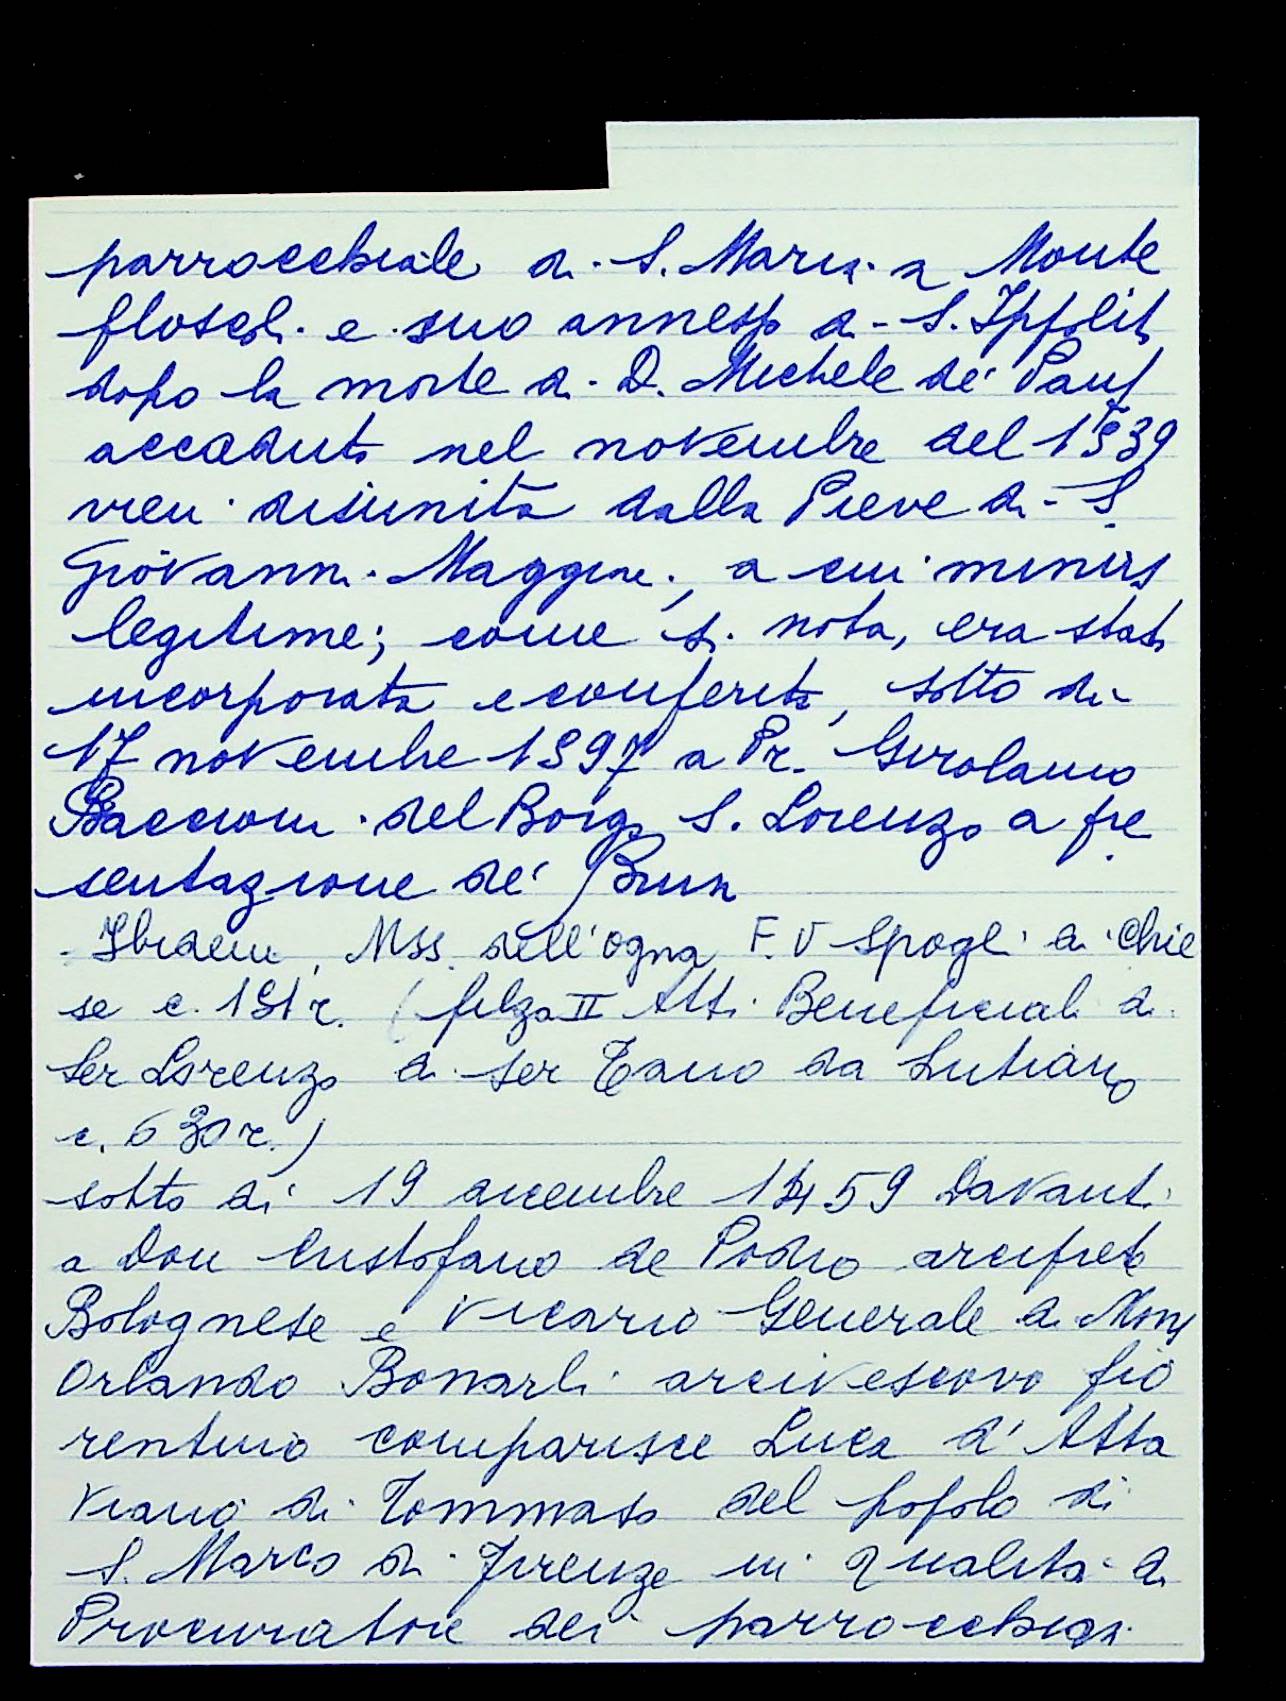 parrocchiale di S. Maria a Monte
floscoli e suo annesso di S. Ippolito
dopo la morte di D. Michele de' Pauli
accaduto nel novembre del 1539
vien disunita dalla Pieve di S.
Giovanni Maggiore, a cui minus
legitime; come si nota, era stata
incorporata e conferita, sotto di
17 novembre 1597 a Pr. Girolamo
Baccioni del Borgo S. Lorenzo a pre
sentazione de' Brun
Ibidem, Mss. dell'Ogna F. V Spogli di Chie
se c. 191r. (filza II Atti Beneficiali di
Ser Lorenzo di ser Tano da Lutiano
c. 630r.)
sotto di 19 dicembre 1459 Davanti
a Don Cristofano de Podio arciprete
Bolognese e Vicario Generale di Mons
Orlando Bonarli arcivescovo fio
rentino comparisce Luca d'Atta
viano di Tommaso del popolo di
S. Marco di Firenze in qualità di
Procuratore dei parrocchiani